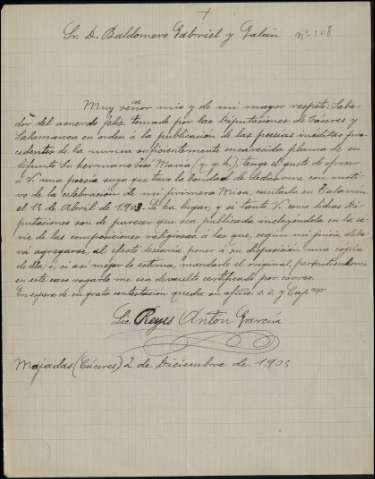 Sr. D. Baldomero Gabriel y Galán nº 108
Muy señor mio y de mi mayor respeto: Sabe-
dor del acuerdo feliz tomado por las Diputaciones de Cáceres y
Salamanca en orden á la publicación de las poesías inéditas pro-
cedentes de la nunca suficientemente encarecida pluma de su
difunto Sr. hermano José María (q. g. h.), tengo el gusto de ofrecer
á V. una poesía suya que tuvo la bondad de dedicarme con moti-
vo de la celebración de mi primera Misa, cantada en
el 13 de Abril de 1903. Si ha lugar, y si tanto V. como dichas Di-
putaciones son de parecer que sea publicada incluyéndola en la se-
rie de las composiciones religiosas á las que, según mi juicio, debía
agregarse, al efecto desearía poner á su disposición una copia
de ella, ó, si así mejor lo estima, mandarle el original,
en este caso rogarle me sea devuelto certificado por correo.
En espera de su grata contestación queda su afmo. s. s. y Cap.
Lic. Reyes Antón García
Majadas (Cáceres) 2 de Diciembre de 1905